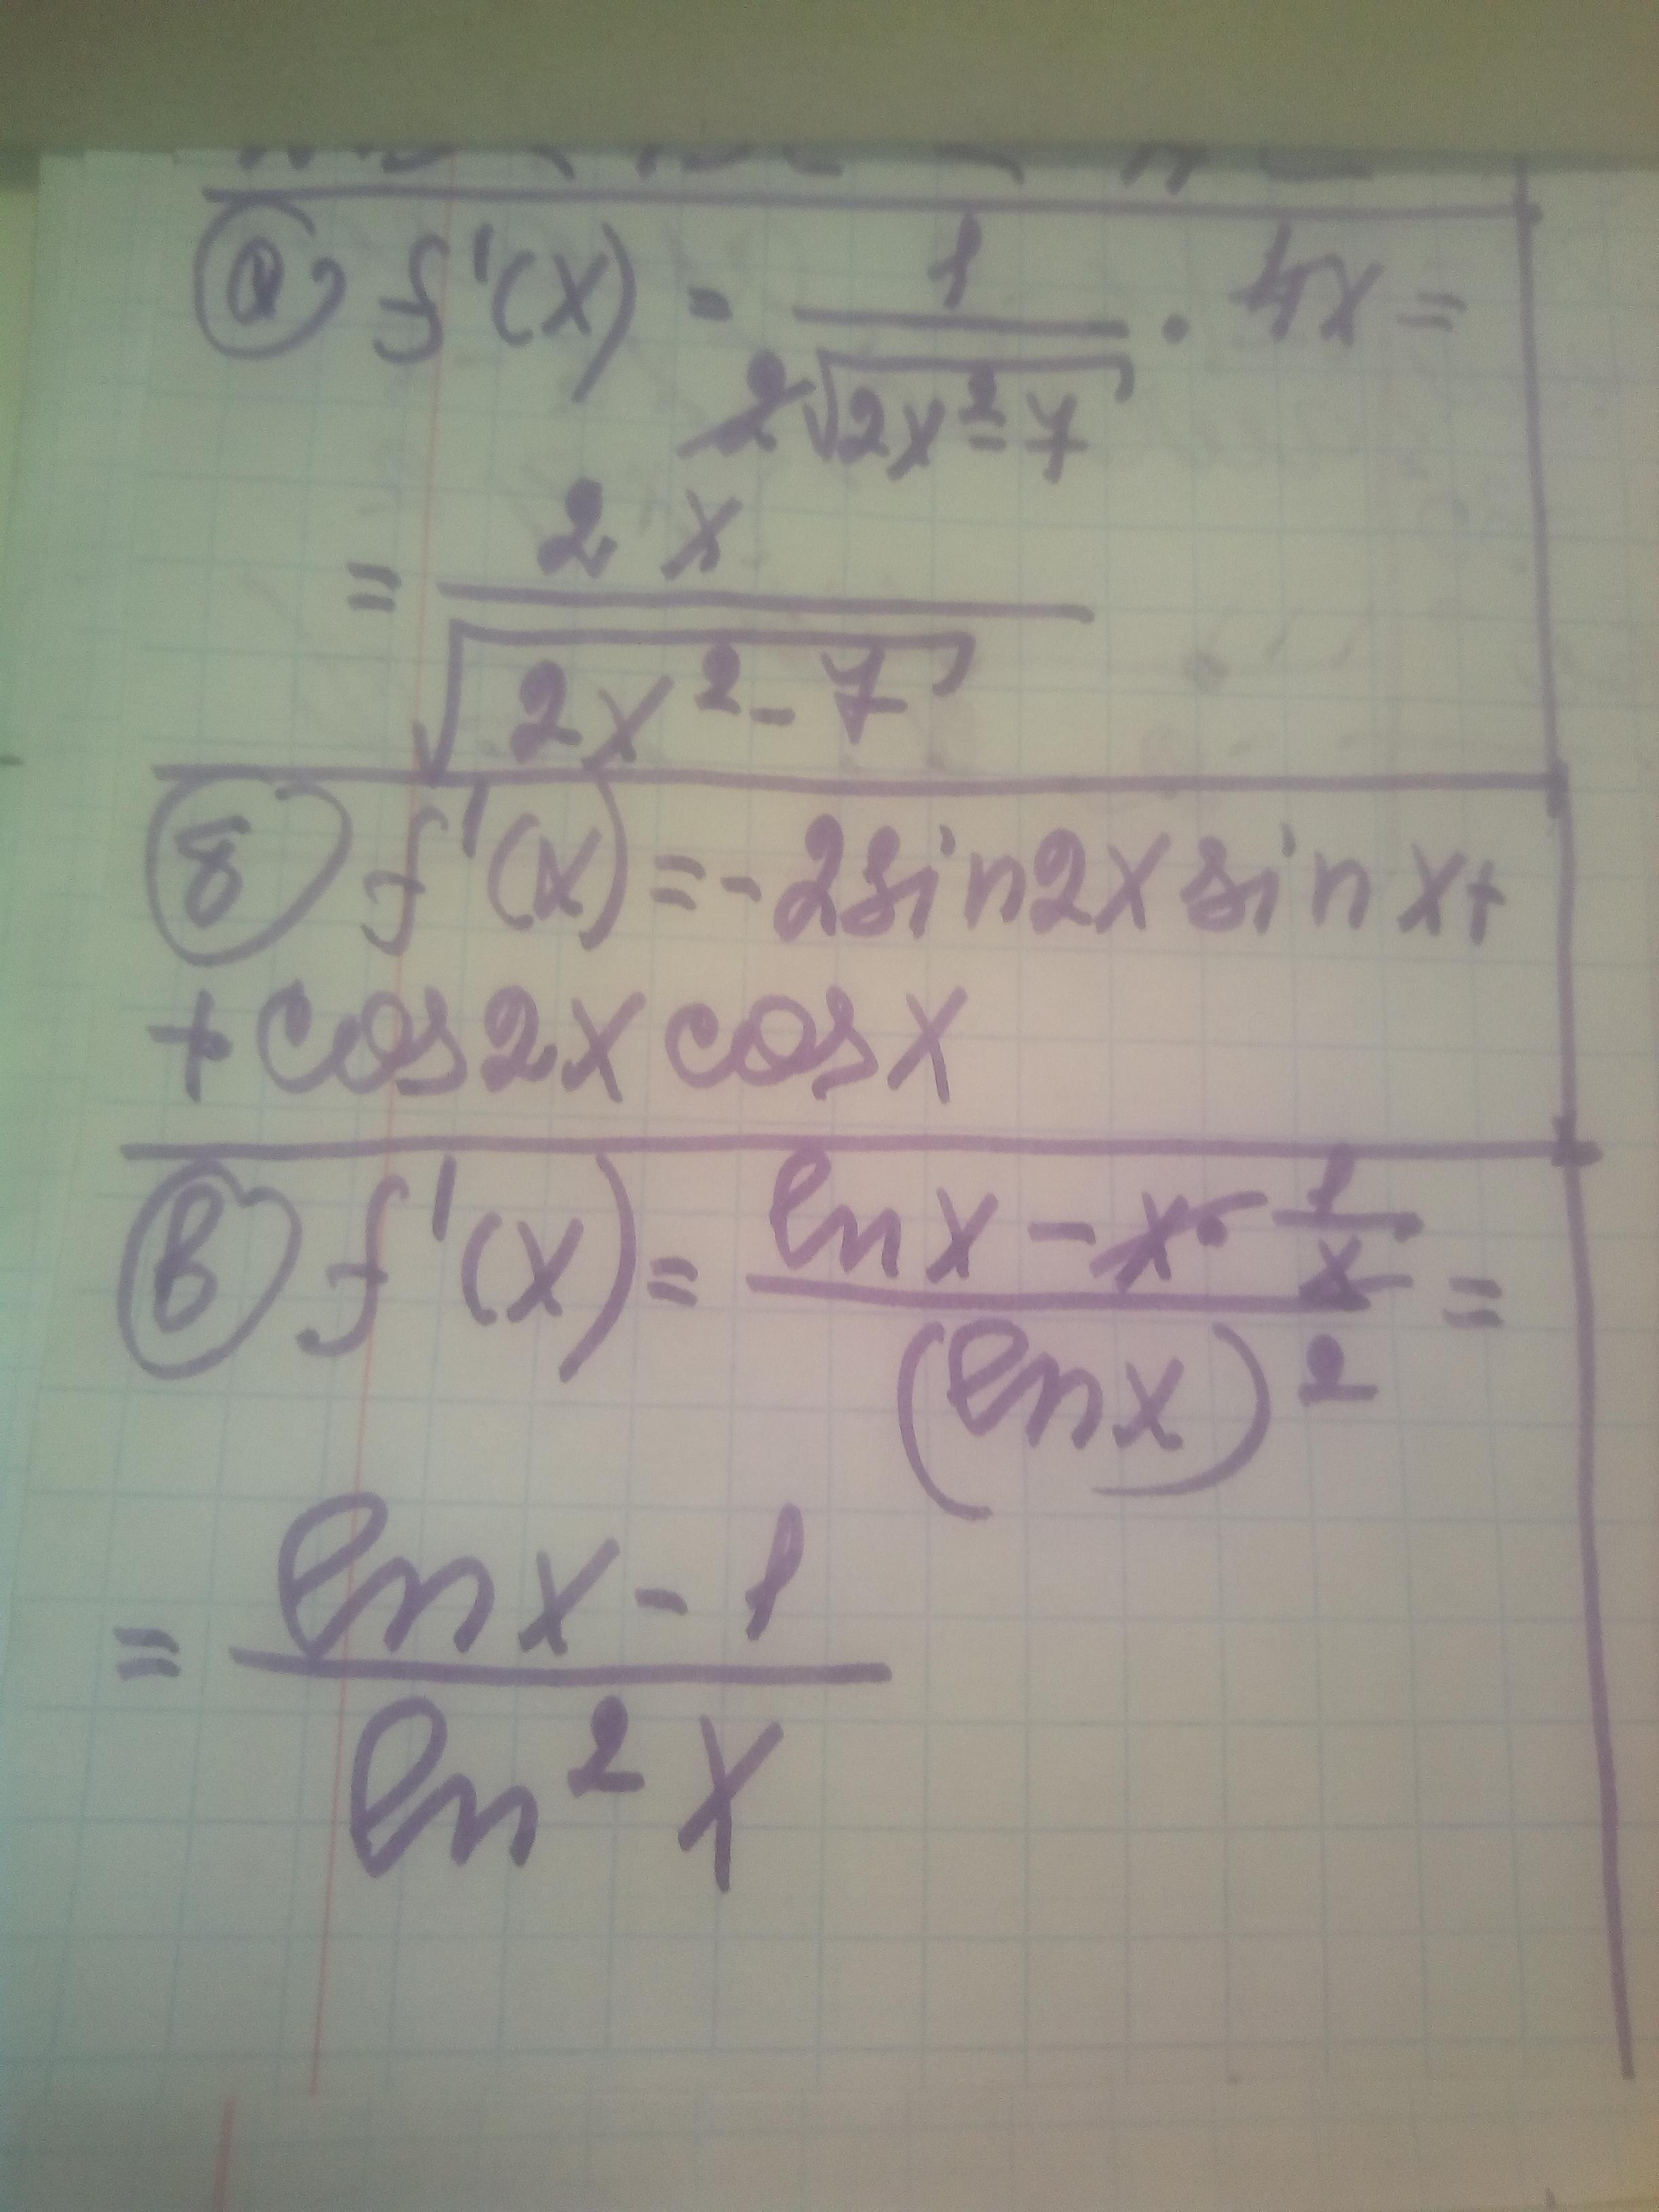 а) f'(x) = 1/(2√(2x²-7)) · 4x =
= 2x/√(2x²-7)
б) f'(x) = -2sin2x sin x +
+ cos2x cos x
в) f'(x) = (ln x - x · 1/x)/(ln x)² =
= (ln x - 1)/(ln² x)